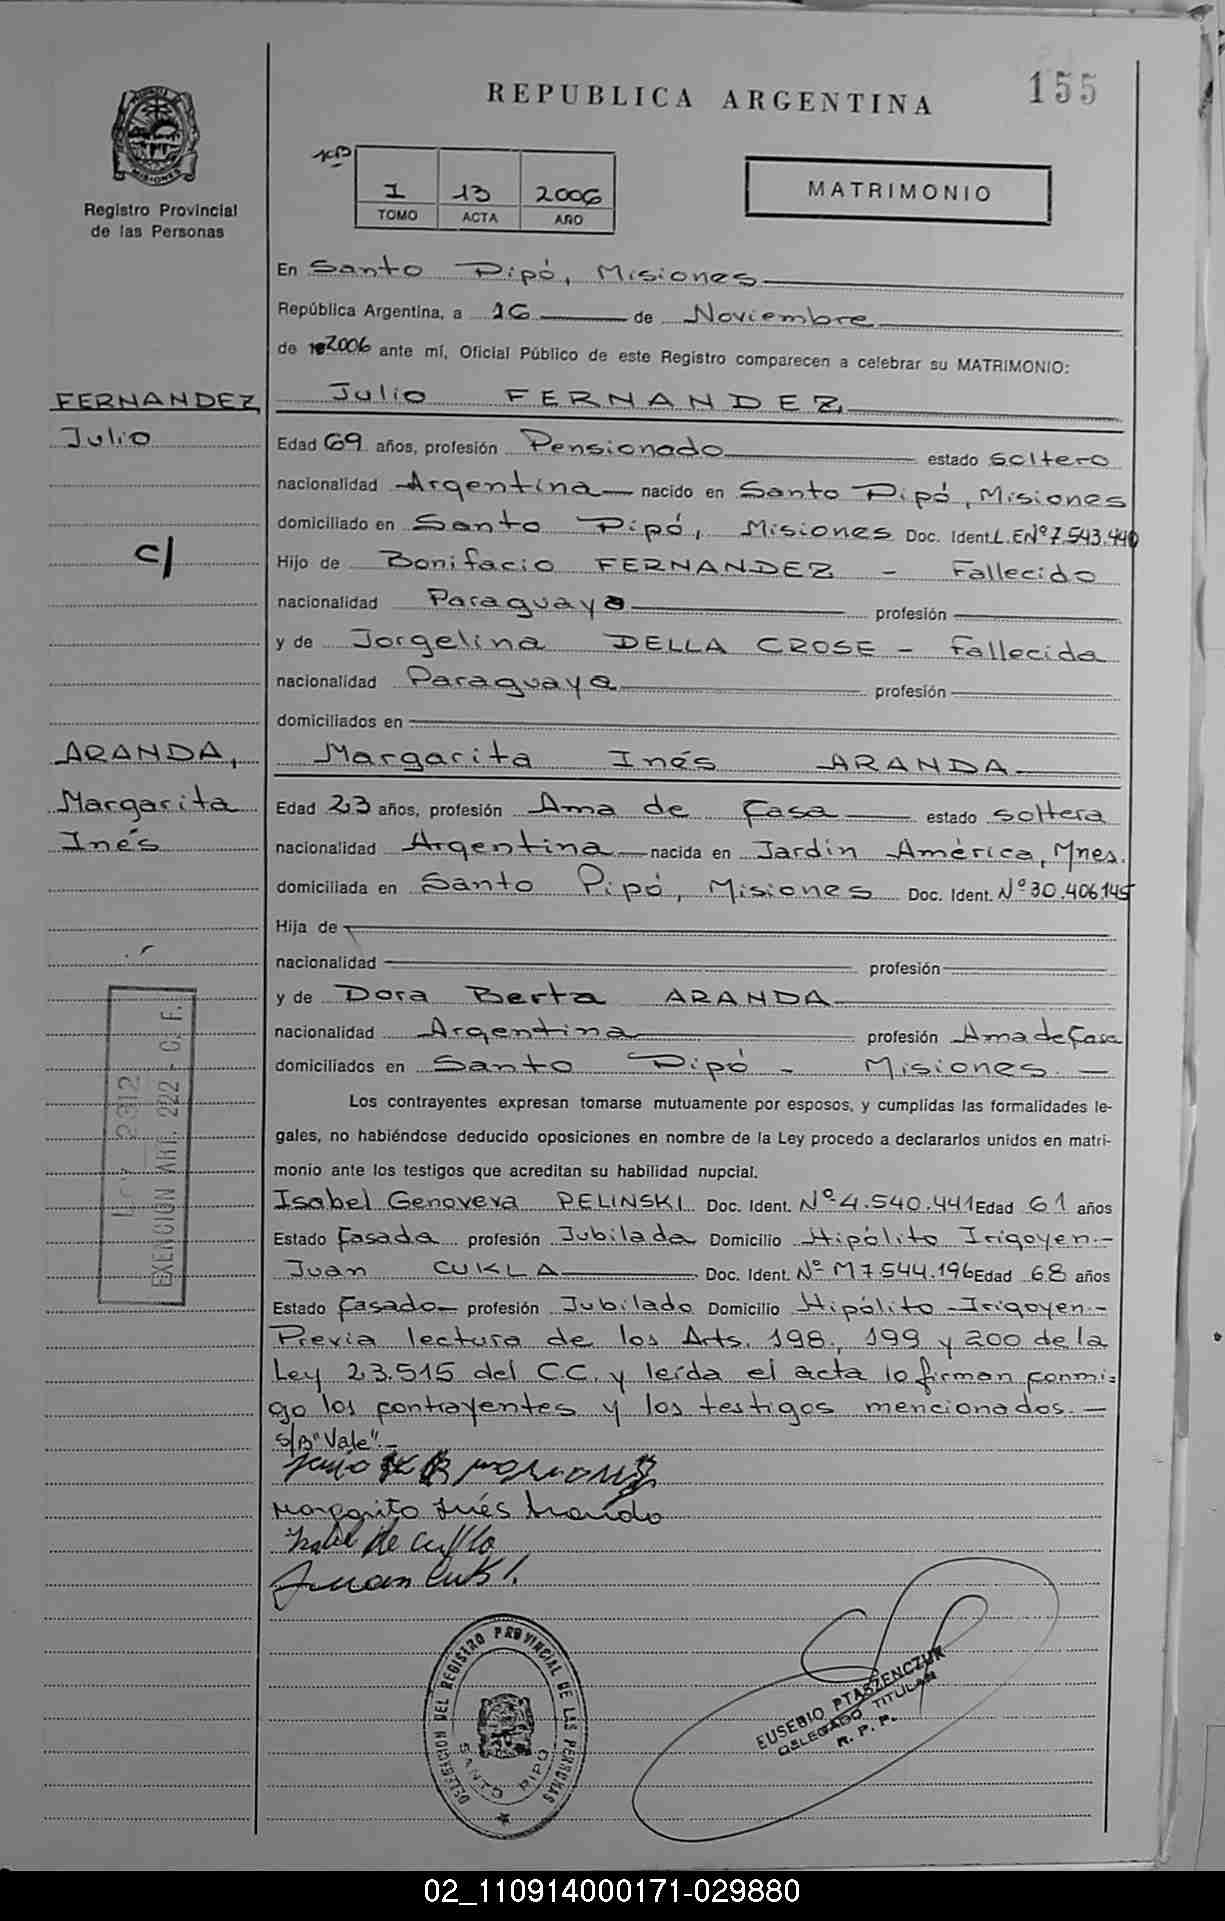 155
REPUBLICA ARGENTINA
PROVINCIA DE MISIONES
Registro Provincial
de las Personas
I 13 2006
TOMO ACTA AÑO
MATRIMONIO
En Santo Pipó, Misiones
República Argentina, a 16 de Noviembre
de 2006 ante mí, Oficial Público de este Registro comparecen a celebrar su MATRIMONIO:
FERNANDEZ
Julio
c/
Julio FERNANDEZ
Edad 69 años, profesión Pensionado estado soltero
nacionalidad Argentina nacido en Santo Pipó, Misiones
domiciliado en Santo Pipó, Misiones Doc. Ident. L.E Nº 7.543.440
Hijo de Bonifacio FERNANDEZ - Fallecido
nacionalidad Paraguaya profesión
y de Jorgelina DELLA CROSE - Fallecida
nacionalidad Paraguaya profesión
domiciliados en
ARANDA,
Margarita
Inés
Margarita Inés ARANDA
Edad 23 años, profesión Ama de Casa estado soltera
nacionalidad Argentina nacida en Jardín América, Mnes.
domiciliada en Santo Pipó, Misiones Doc. Ident. Nº 30.406.145
Hija de
nacionalidad profesión
y de Dora Berta ARANDA
nacionalidad Argentina profesión Ama de Casa
domiciliados en Santo Pipó - Misiones. -
Los contrayentes expresan tomarse mutuamente por esposos, y cumplidas las formalidades le-
gales, no habiéndose deducido oposiciones en nombre de la Ley procedo a declararlos unidos en matri-
monio ante los testigos que acreditan su habilidad nupcial.
Isabel Genoveva PELINSKI Doc. Ident. Nº 4.540.441 Edad 61 años
Estado Casada profesión Jubilada Domicilio Hipólito Irigoyen.-
Juan CUKLA Doc. Ident. Nº M7.544.196 Edad 68 años
Estado Casado profesión Jubilado Domicilio Hipólito Irigoyen.-
Previa lectura de los Arts. 198, 199 y 200 de la
Ley 23.515 del C.C. y leída el acta lo firman conmi-
go los contrayentes y los testigos mencionados. -
S/B "Vale".-
Margarita Inés Aranda
2012
EXENCION ART. 222 - C.F.
DELEGACION DEL REGISTRO PROVINCIAL DE LAS PERSONAS
SANTO PIPO
EUSEBIO PTASZENCZUK
DELEGADO TITULAR
R. P. P.
02_110914000171-029880